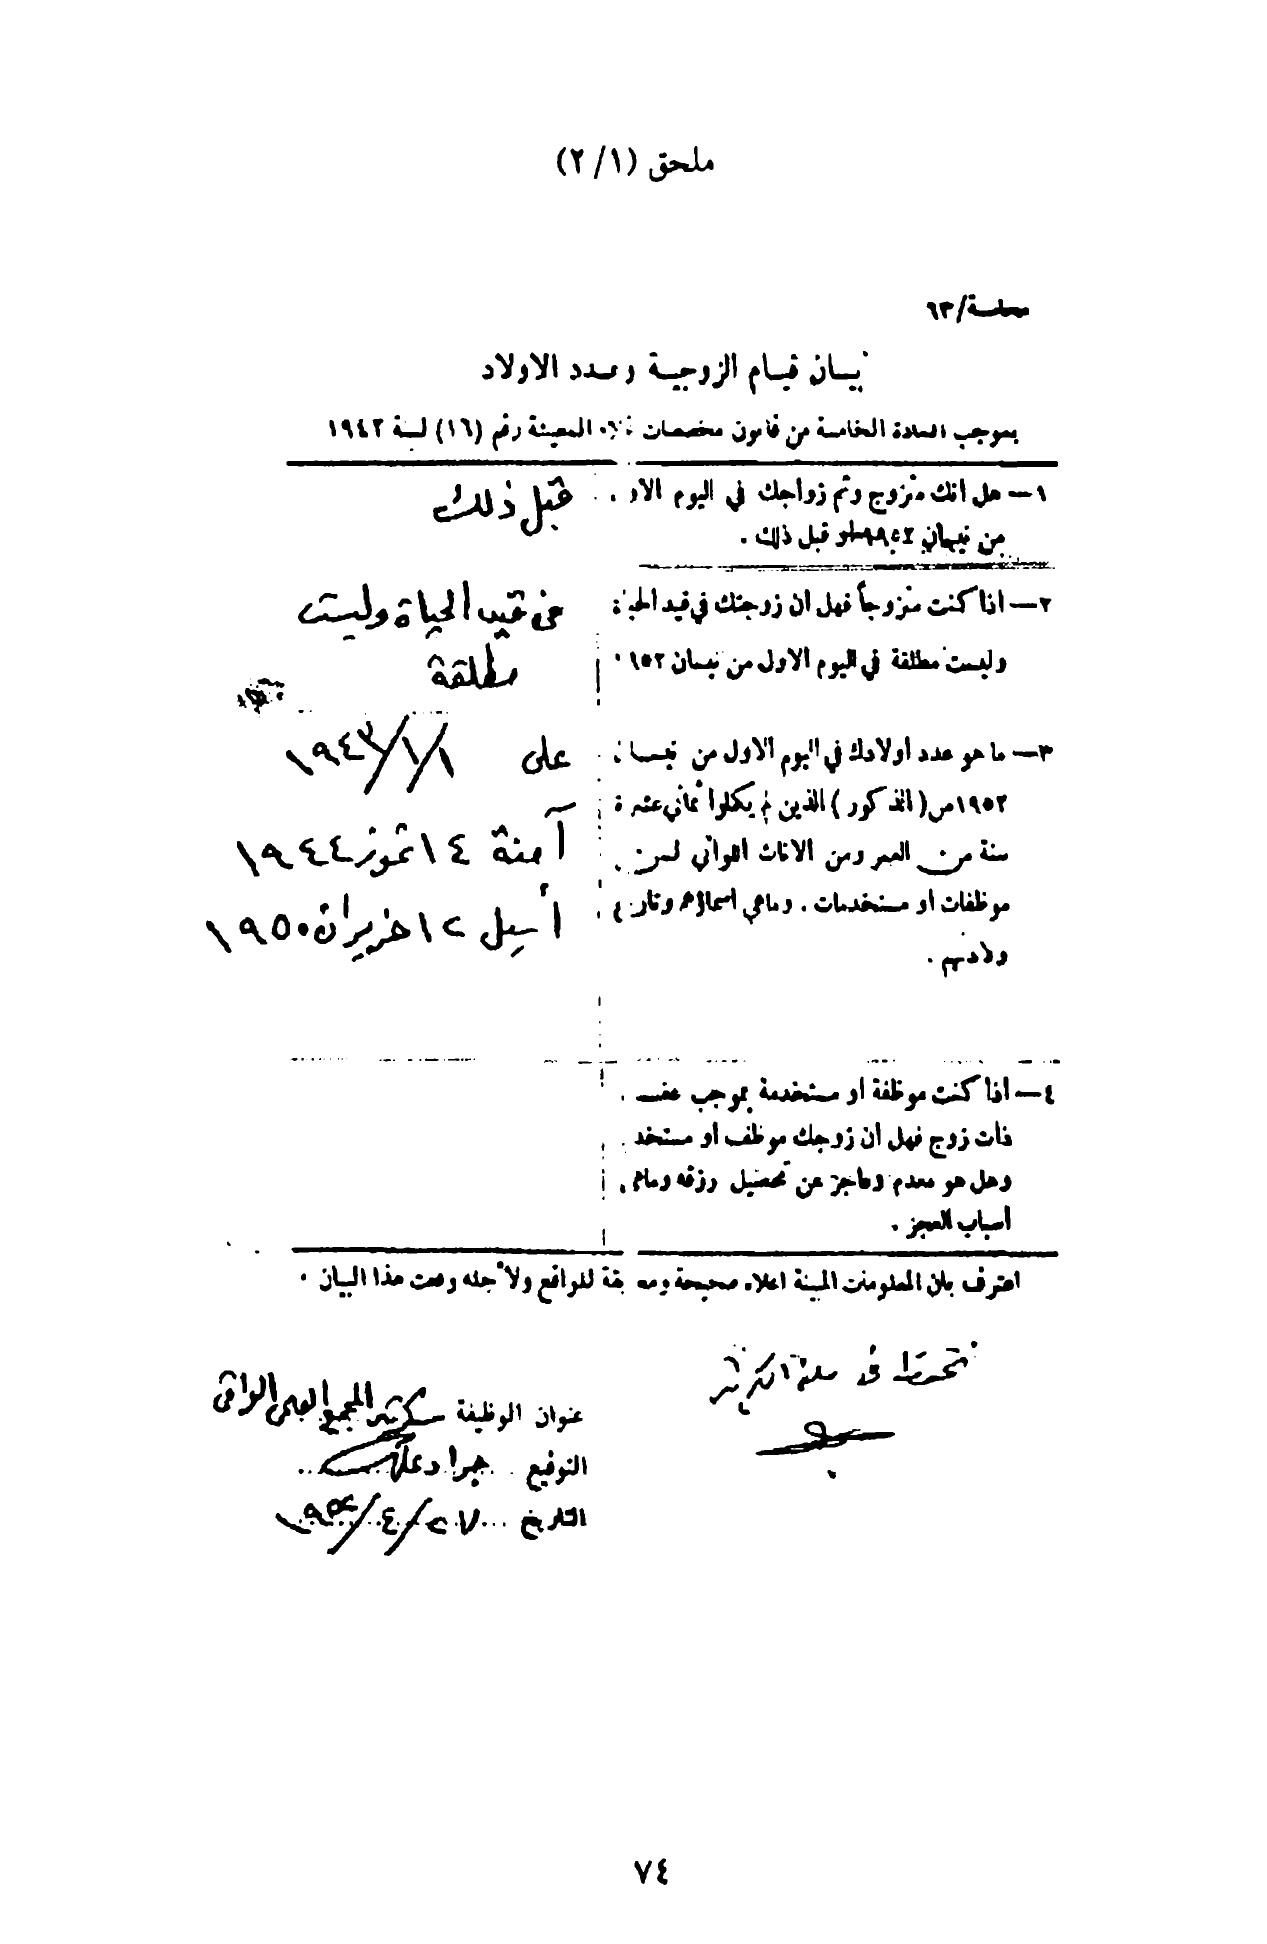 ملحق (٢/١)
محاسبة/٦٣
بيان قيام الزوجية وعدد الاولاد
بموجب المادة الخامسة من قانون مخصصات غلاء المعيشة رقم (١٦) لسنة ١٩٤٢
١— هل انك متزوج وتم زواجك في اليوم الاول
من نيسان ١٩٥٢ او قبل ذلك .
قبل ذلك
٢— اذا كنت متزوجاً فهل ان زوجتك في قيد الحياة
وليست مطلقة في اليوم الاول من نيسان ١٩٥٢
في قيد الحياة وليست
مطلقة
٣— ما هو عدد اولادك في اليوم الاول من نيسان
١٩٥٢ من (الذكور) الذين لم يكملوا ثماني عشرة
سنة من العمر ومن الاناث اللواتي لسن
موظفات أو مستخدمات . وماهي اسماؤهم وتاريخ
ولادتهم .
على ١/١/١٩٤٣
آمنة ١٤ تموز ١٩٤٤
أسيل ١٢ حزيران ١٩٥٠
٤— اذا كنت موظفة او مستخدمة بموجب عقد
ذات زوج فهل ان زوجك موظف او مستخدم
وهل هو معدم وعاجز عن تحصيل رزقه وماهي
أسباب العجز .
اعترف بان المعلومات المبينة اعلاه صحيحة ومطابقة للواقع ولأجله وقعت هذا البيان .
تحفظ في ملفة
عنوان الوظيفة سكرتير المجمع العلمي العراقي
التوقيع جواد علي
التاريخ ٢٧/٤/١٩٥٢
٧٤